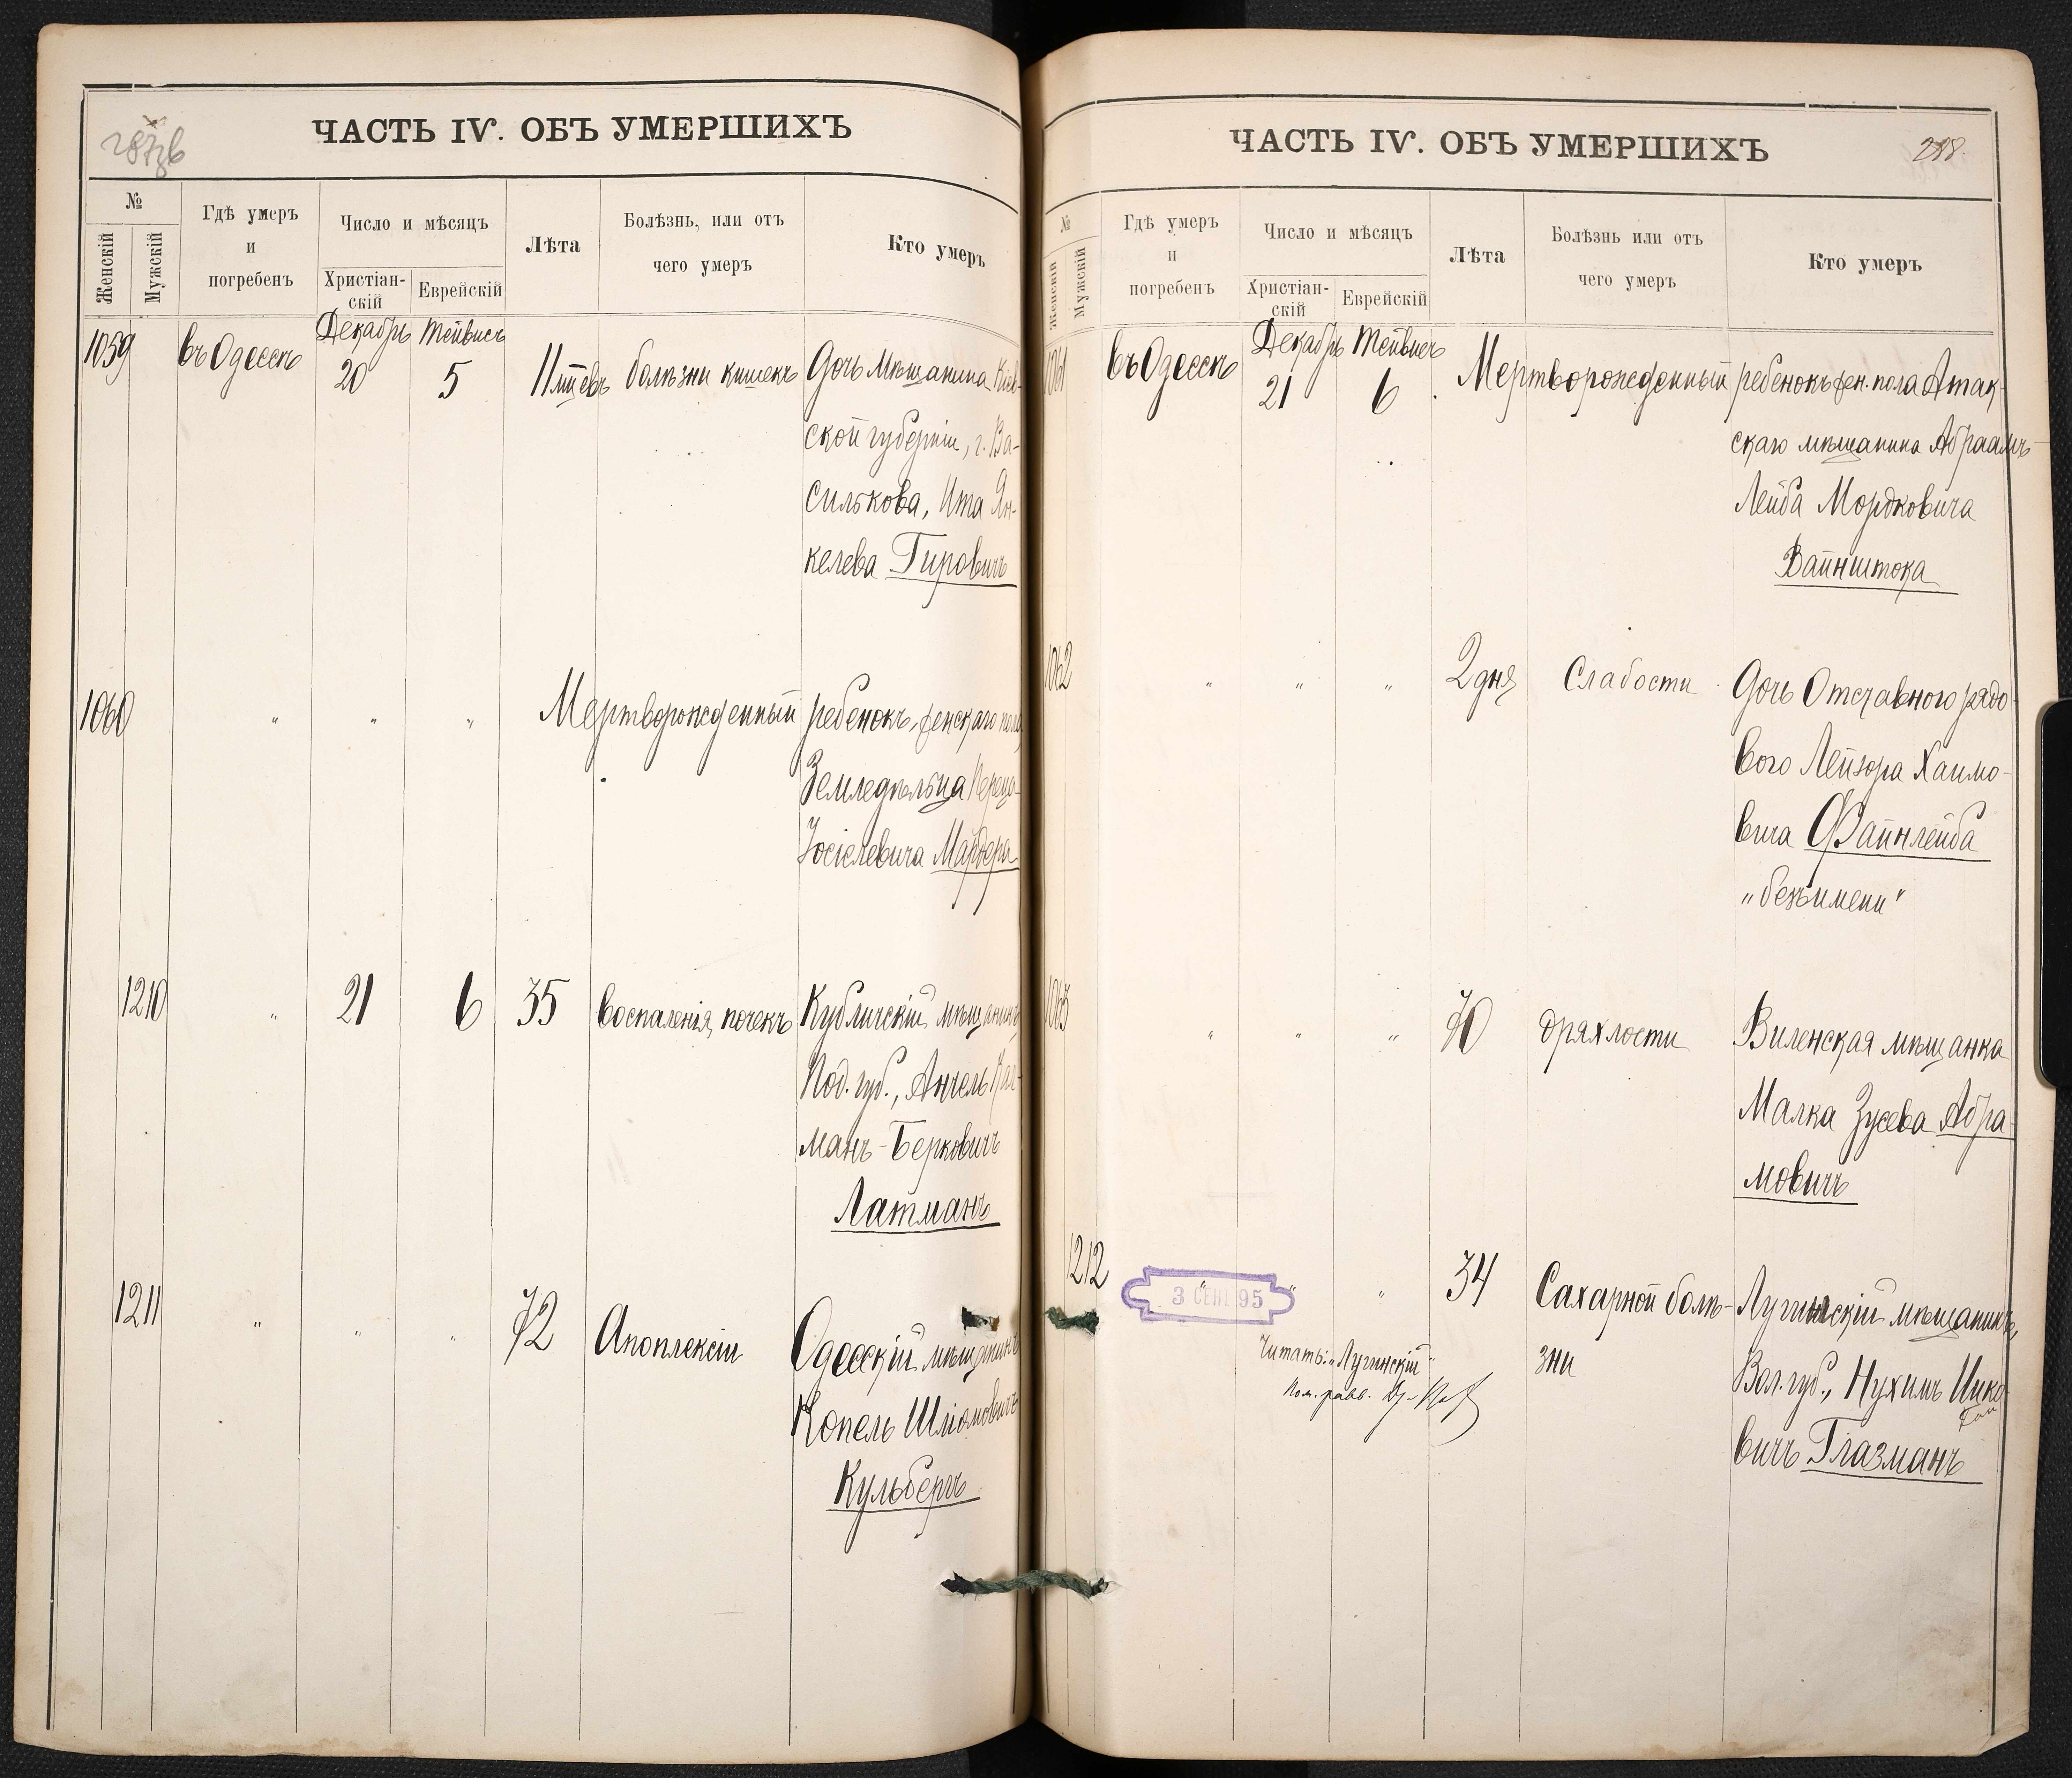 287 об
ЧАСТЬ IV. ОБЪ УМЕРШИХЪ
№
Женскій
Мужскій
Гдѣ умеръ
и
погребенъ
Число и мѣсяцъ
Христіан-
скій
Еврейскій
Лѣта
Болѣзнь, или отъ
чего умеръ
Кто умеръ
1059 въ Одессѣ Декабрь 20 Тейвисъ 5 11 мѣсѣвъ болѣзни кишекъ Дочь мѣщанина Кіев-
ской губерніи, г. Ва-
силькова, Ита Ян-
келева Гировичъ
1060 " " " Мертворожденный ребенокъ, женскаго пола
Земледѣльца Переца
Іосіелевича
1210 " 21 6 35 воспаленія почекъ Кубличскій мѣщанинъ
Под. губ., Анчель Кал-
манъ-Берковичъ
Латманъ
1211 " " " 72 Апоплексіи Одесскій мѣщанинъ
Копель Шліомовичъ
Кульбергъ
ЧАСТЬ IV. ОБЪ УМЕРШИХЪ
288.
№
Женскій
Мужскій
Гдѣ умеръ
и
погребенъ
Число и мѣсяцъ
Христіан-
скій
Еврейскій
Лѣта
Болѣзнь или отъ
чего умеръ
Кто умеръ
1061 въ Одессѣ Декабрь 21 Тейвисъ 6 Мертворожденный ребенокъ жен. пола Атак-
скаго мѣщанина Абраамъ
Лейба Мордковича
Вайнштока
1062 " " " 2 дня Слабости Дочь Отставного рядо-
вого Лейзора Хаимо-
вича Файнлейба
"безъ имени"
1063 " " " 70 дряхлости Виленская мѣщанка
Малка Зусева Абра-
мовичъ
1212 " " " 34 Сахарной болѣ- Лугинскій мѣщанинъ,
зни Вол. губ., Нухимъ Ицко-
вичъ Глазманъ
3 СЕН 95
Читать: "Лугинскій"
Пом. равв.